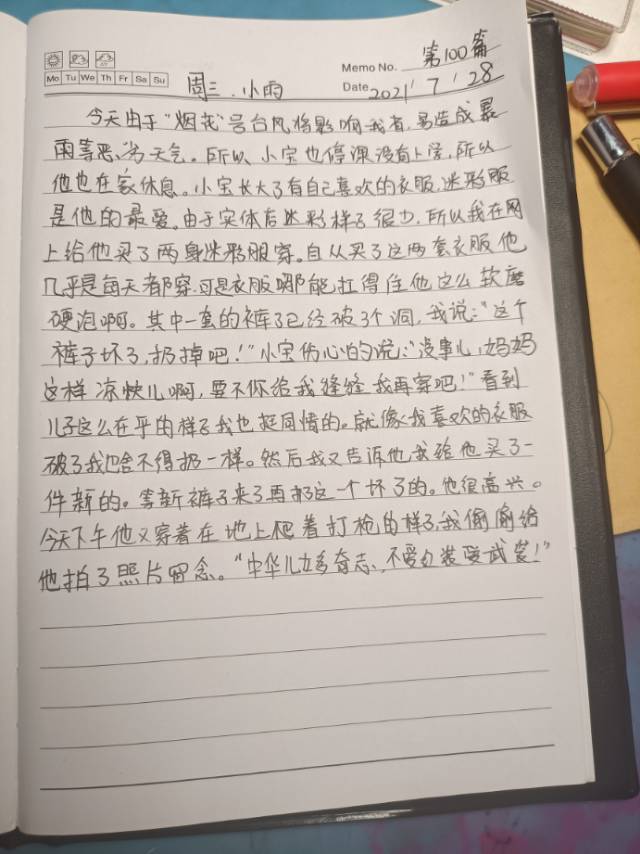 Memo No. 第100篇
Mo Tu We Th Fr Sa Su
周三.小雨
Date 2021/7/28
今天由于“烟花”号台风将影响我省,易造成暴
雨等恶劣天气。所以小宝也停课没有上学,所以
他也在家休息。小宝长大了有自己喜欢的衣服,迷彩服
是他的最爱。由于实体店迷彩样子很少,所以我在网
上给他买了两身迷彩服穿。自从买了这两套衣服他
几乎是每天都穿.可是衣服哪能扛得住他这么软磨
硬泡啊。其中一套的裤子已经破了个洞,我说:“这个
裤子坏了,扔掉吧!”小宝伤心的说:“没事儿,妈妈
这样凉快儿啊,要不你给我缝缝我再穿吧!”看到
儿子这么在乎的样子我也挺同情的。就像我喜欢的衣服
破了我也舍不得扔一样。然后我又告诉他我给他买了一
件新的。等新裤子来了再扔这一个坏了的。他很高兴。
今天下午他又穿着在地上爬着打枪的样子,我偷偷给
他拍了照片留念。“中华儿女多奇志,不爱红装爱武装!”